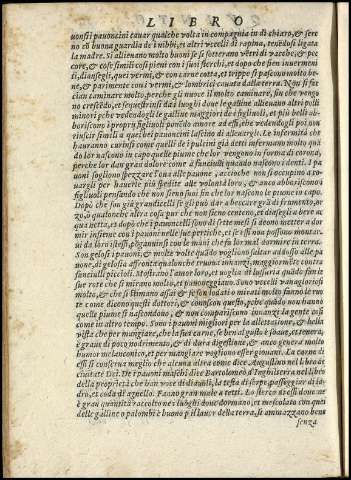 LIBRO
uonsi i pauoncini cauar qualche volta in compagnia in dì chiaro, & sere
no cõ buona guardia de i nibbi, et altri vccelli di rapina, tenẽdosi legata
la madre. Si alleuano molto buoni se si sotterrano vẽtri di vacche, & pec
core, & cose simili così pieni con i suoi sterchi, et dopo che sien inuermeni
ti, diansegli, quei vermi, & con carne cotta, et trippe si pascono molto be
ne, & parimente con i vermi, & lombrici cauati dalla terra. Non si fac
cian caminare molto, perche gli nuoce il molto caminare, fin che vengo
no crescẽdo, et sequestrinsi da i luoghi doue le galline alleuano altri polli
minori pche vedendogli le galline maggiori de figliuoli, et più belli ab
boriscono i propri figliuoli ponẽdo amore ad essi, che vedendogli poi non
riuscir simili a quei dei pauoncini lascino di alleuargli. Le infermità che
hauranno curinsi come quelle de i pulcini già detti infermano molto quã
do lor nascono in capo quelle piume che lor vengono in forma di corona,
perche lor dan gran dolore come a fanciulli quando nascono i denti. I pa
uoni sogliono spezzar l'oua alle pauone, accioche non si occupino a co
uargli per hauerle più spedite alle volontà loro, & anco abboriscono i
figliuoli pensando che non sieno suoi fin che lor nascono le piume in capo.
Dopò che son già grandicelli se gli può dar a beccar grã di frumento, or
zo, ò qualonche altra cosa pur che non sieno centeno, et diasegli a bere ac
qua netta, et dopò che i pauoncelli sono di sette mesi si deono metter a dor
mir insieme con i pauoni nelle sue pertiche, et se essi non possono montar
ui da loro stessi, põganuinsi con le mani che fà lor mal dormire in terra.
Son gelosi i pauoni, & molte volte quãdo vogliono saltar addosso alle pa
uone, di gelosia affrontã qualonche truouano innanzi, maggiormẽte contra
fanciulli piccioli. Mostrano l'amor loro, et voglia di lussuria quãdo fan le
sue rote che si miramo molto, et pauoneggiano. Sono vccelli vanagloriosi
molto, & che si stimano assai & se son lodati ò mirati molto fanno le ruo
te come dicono questi dottori, & confesso questo, pche quãdo non hanno
quelle piume si nascondono, & non compariscono innanzi la gente così
come in altro tempo. Sono i pauoni migliori per la dilettatione, & bella
vista che per mangiare, che la sua carne, se ben al gusto è soaue, et tenera,
è graue, di poco nodrimento, & di dura digestione, & anco genera molto
humor melanconico, et per mangiare vogliono esser giouani. La carne di
essi si conserua meglio che alcuna altra come dice Augustino nel libro de
ciuitate Dei. De i pauoni maschi dice Bartolomeo d'Inghilterra nel libro
della proprietà che han voce di diauoli, la testa di serpe, passeggiar di la-
dro, et coda di agnello. Fanno gran male a tetti. Lo sterco di essi doue ne
è gran quantità raccolto ne i luoghi doue dormano, et mescolato con quei
delle galline o palombi è buono p il lauor della terra, se ammazzano bene
senza